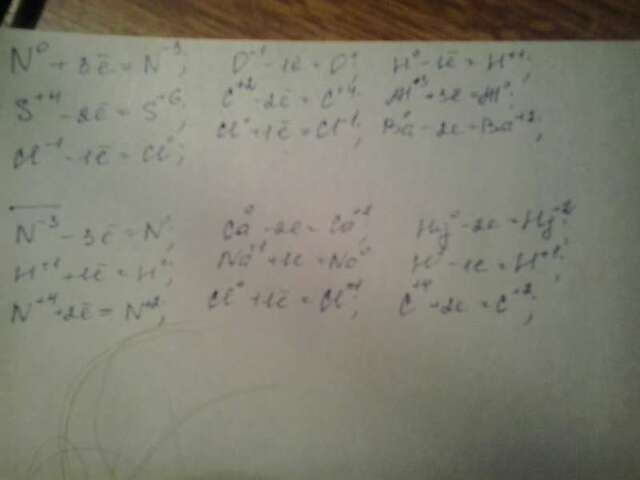 N⁰ + 3ē = N⁻³; O⁻¹ - 1ē = O⁰; H⁰ - 1ē = H⁺¹;
S⁺⁴ - 2ē = S⁺⁶; C⁺² - 2ē = C⁺⁴; Al⁺³ + 3ē = Al⁰;
Cl⁻¹ - 1ē = Cl⁰; Cl⁰ + 1ē = Cl⁻¹; Ba⁰ - 2e = Ba⁺²;
N⁻³ - 3ē = N⁰; Ca⁰ - 2e = Ca⁺²; Hg⁰ - 2e = Hg⁺²;
H⁺¹ + 1ē = H⁰; Na⁺¹ + 1e = Na⁰; H⁰ - 1e = H⁺¹;
N⁺⁴ + 2ē = N⁺²; Cl⁰ + 1ē = Cl⁻¹; C⁺⁴ + 2e = C⁺²;